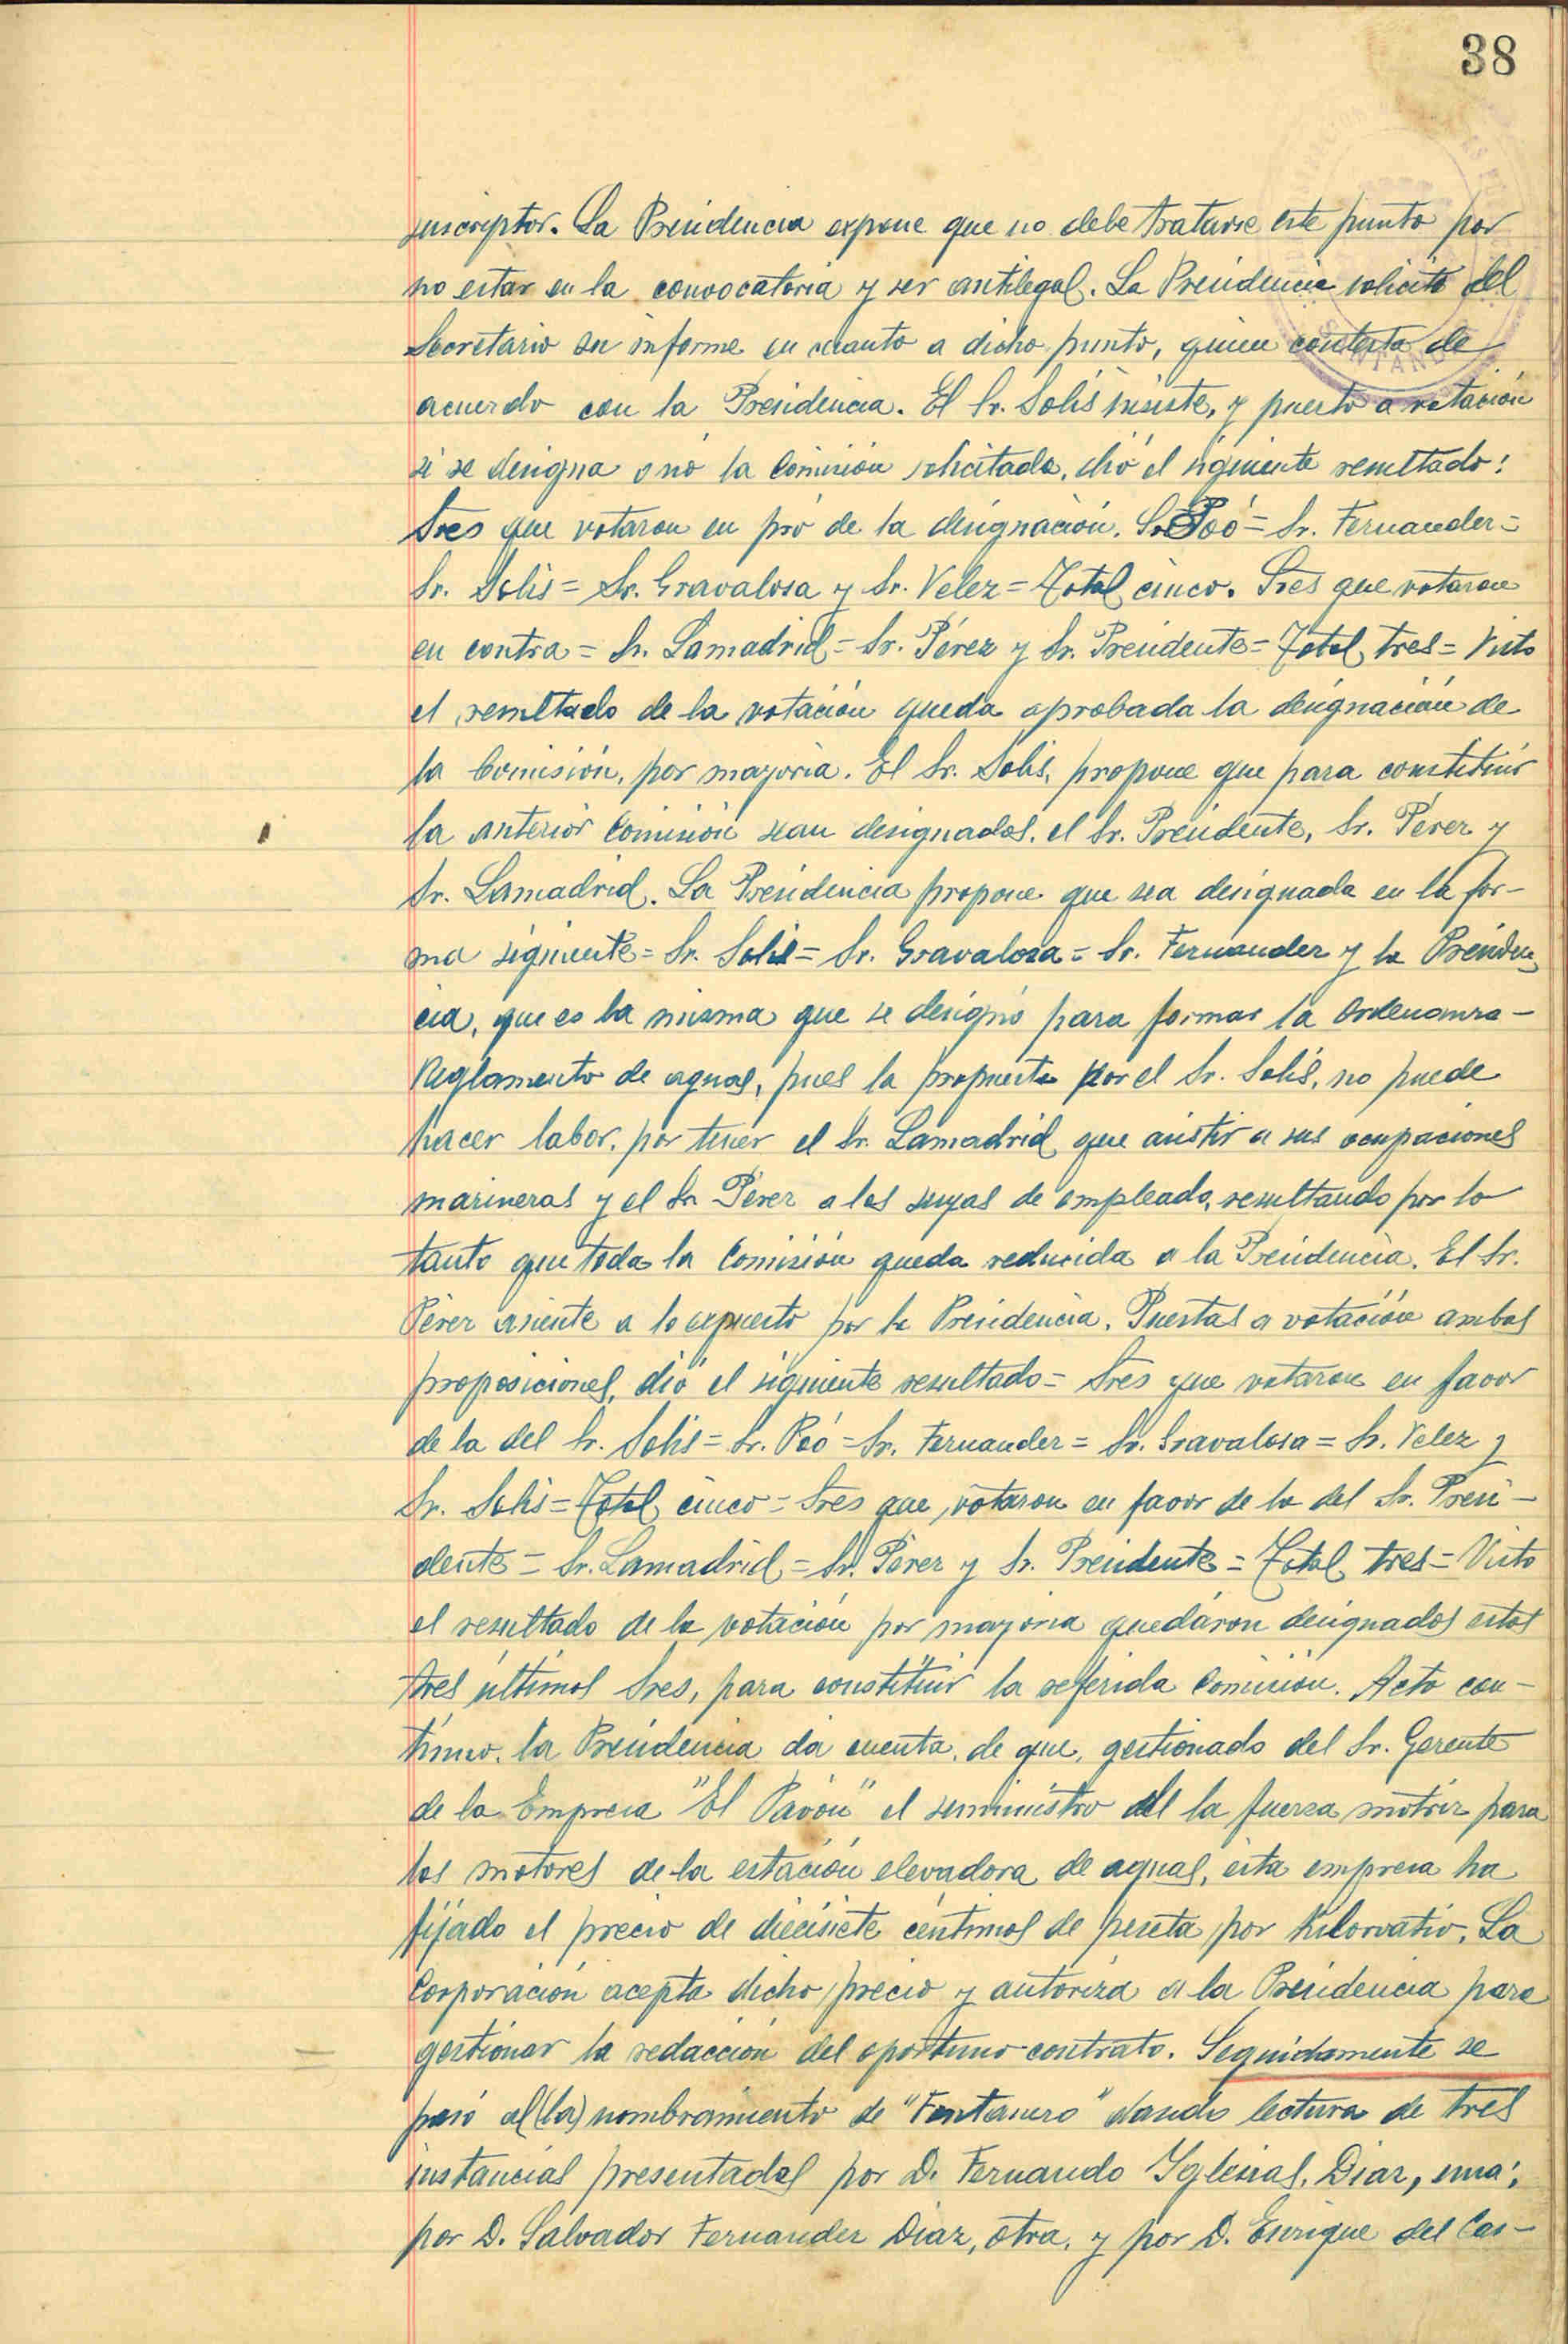 38
suscriptor. La Presidencia expone que no debe tratarse este punto por
no estar en la convocatoria y ser antilegal. La Presidencia solicita del
Secretario su informe en cuanto a dicho punto, quien contesta de
acuerdo con la Presidencia. El Sr. Solis insiste, y puesto a votación
si se designa o nó la Comisión solicitada, dió el siguiente resultado:
Sres que votaron en pró de la designación. Sr. Poó = Sr. Fernandez =
Sr. Solis = Sr. Gravalosa y Sr. Velez = Total cinco. Sres que votaron
en contra = Sr. Lamadrid = Sr. Pérez y Sr. Presidente = Total tres = Visto
el resultado de la votación queda aprobada la designación de
la Comisión, por mayoria. El Sr. Solis, propone que para constituir
la anterior Comisión sean designados, el Sr. Presidente, Sr. Pérez y
Sr. Lamadrid. La Presidencia propone que sea designada en la for-
ma siguiente = Sr. Solis = Sr. Gravalosa = Sr. Fernandez y la Presiden-
cia, que es la misma que se designó para formar la Ordenanza-
Reglamento de aguas, pues la propuesta por el Sr. Solis, no puede
hacer labor, por tener el Sr. Lamadrid que asistir a sus ocupaciones
marineras y el Sr Pérez a las suyas de empleado, resultando por lo
tanto que toda la Comisión queda reducida a la Presidencia. El Sr.
Pérez asiente a lo expuesto por la Presidencia. Puestas a votación ambas
proposiciones, dió el siguiente resultado = Sres que votaron en favor
de la del Sr. Solis = Sr. Poó = Sr. Fernandez = Sr. Gravalosa = Sr. Velez y
Sr. Solis = Total cinco = Sres que votaron en favor de la del Sr. Presi-
dente = Sr. Lamadrid = Sr. Pérez y Sr. Presidente = Total tres = Visto
el resultado de la votación por mayoria quedáron designados estos
tres últimos Sres, para constituir la referida Comisión. Acto con-
tínuo, la Presidencia dá cuenta, de que, gestionado del Sr. Gerente
de la Empresa "El Pavón" el suministro del la fuerza motriz para
los motores de la estación elevadora de aguas, ésta empresa ha
fijado el precio de diecisiete céntimos de peseta por kilorvatio. La
Corporación acepta dicho precio y autoriza a la Presidencia para
gestionar la redacción del oportuno contrato. Seguidamente se
pasó al (la) nombramiento de "Fontanero" dando lectura de tres
instancias presentadas por D. Fernando Yglesias, Diaz, una;
por D. Salvador Fernandez Diaz, otra, y por D. Enrique del Cas-